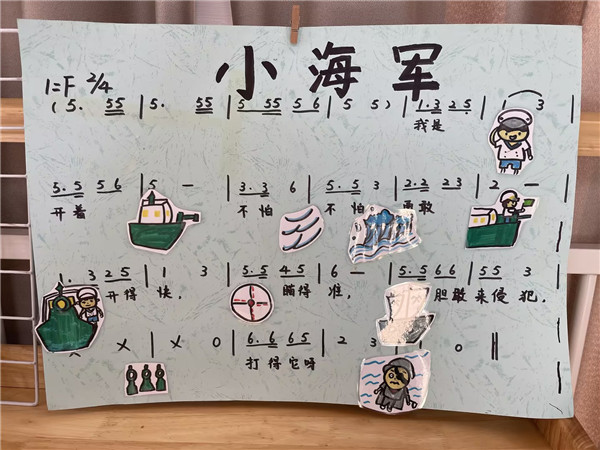 小海军
1=F 2/4
(5. 55 | 5. 55 | 5 55 56 | 5 5) | 1.3 25 | 3 |
我是
5.5 56 | 5 - | 3.3 6 | 5.5 3 | 2.2 23 | 2 - |
开着 不怕 不怕 勇敢
1. 3 25 | 1 3 | 5.5 45 | 6 - | 5.5 66 | 55 3 |
开得快, 瞄得准, 胆敢来侵犯,
X | X 0 | 6.6 65 | 2 3 | 0 ‖
打得它呀